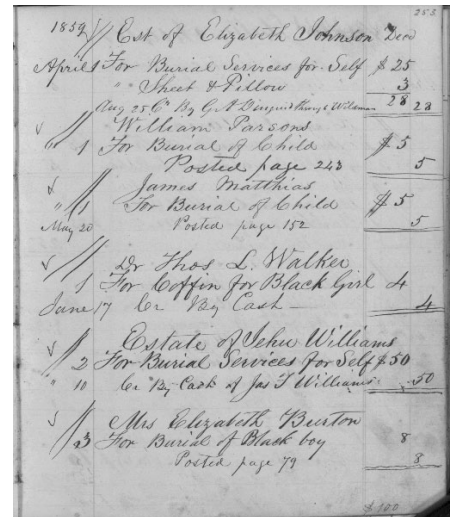 253
1859 Est of Elizabeth Johnson Decd
April 1 For Burial Services for Self $ 25
" " Sheet & Pillow 3
Aug 25 6" By G. A 28 28
William Parsons
" 1 For Burial of Child $ 5
Posted page 243 5
James Matthias
" 1 For Burial of Child $ 5
May 20 Posted page 152 5
Dr Thos L. Walker
1 For Coffin for Black Girl 4
June 17 Cr By Cash 4
Estate of Jehu Williams
" 2 For Burial Services for Self $50
" 10 Cr By Cash of Jas T Williams 50
Mrs Elizabeth Burton
" 3 For Burial of Black boy 8
Posted page 79 8
$ 100